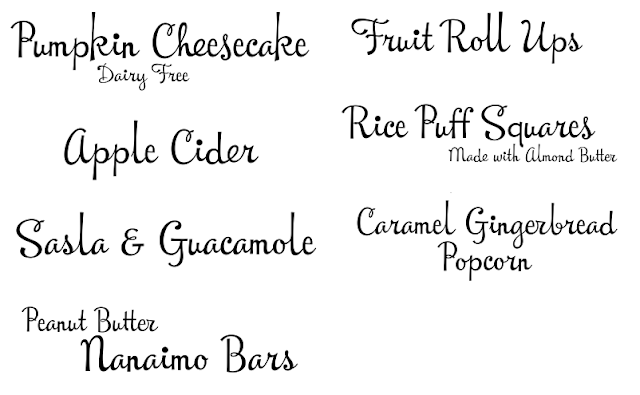 Pumpkin Cheesecake
Dairy Free
Apple Cider
Sasla & Guacamole
Peanut Butter
Nanaimo Bars
Fruit Roll Ups
Rice Puff Squares
Made with Almond Butter
Caramel Gingerbread
Popcorn